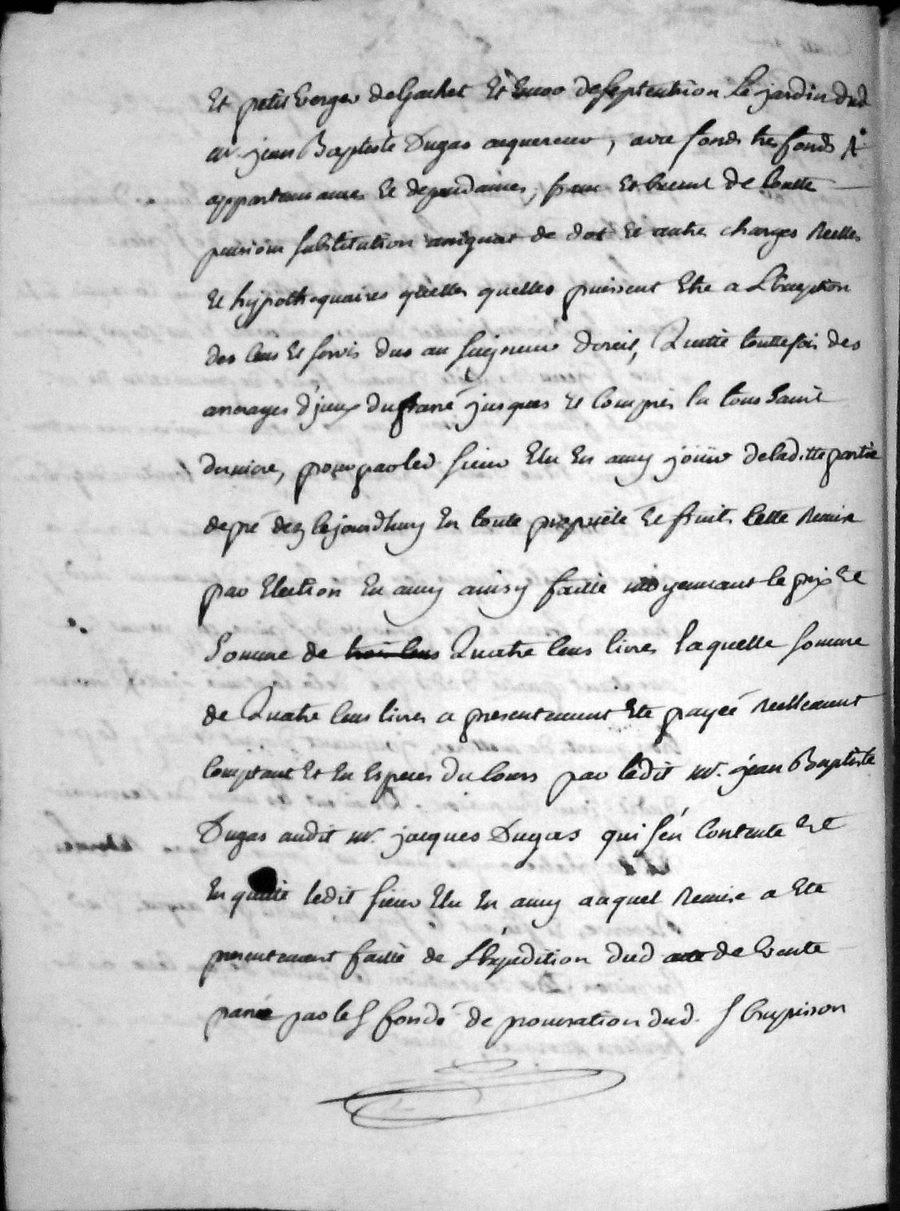 Et petit verger de Gachet Et encor de septentrion Le jardin dud
mr. jean Baptiste Dugas acquereur, avec fonds tres fonds
appartenances Et dependances, franc Et exempt de toutte
pension substitution aniquat de dot Et autre charges Reelles
Et hypothequaires qu'elles quelles puissent Etre a L'Exeption
des Cens Et servis dus au seigneur direct, Quitte toutte fois des
arrerages d'jeux du passé jusques Et Compris la tous saint
derniere, pour par led sieur Elu En amy jouir de laditte partie
de pré dez le jourdhuy En toute proprieté Et fruits Cette Remise
par Election En amy ainsy faitte moyennant le prix Et
Somme de trois Cens Quatre Cens livres Laquelle somme
de Quatre Cens livres a presentement Eté payéé Reellement
Comptant Et En Especes du Cours par ledit mr. jean Baptiste
Dugas audit mr. jacques Dugas qui s'én Contente Et
En quitte ledit sieur Elu En amy auquel Remise a Eté
presentement faitte de L'Expédition dud acte de Vente
passé par le S fondé de procuration dud. S